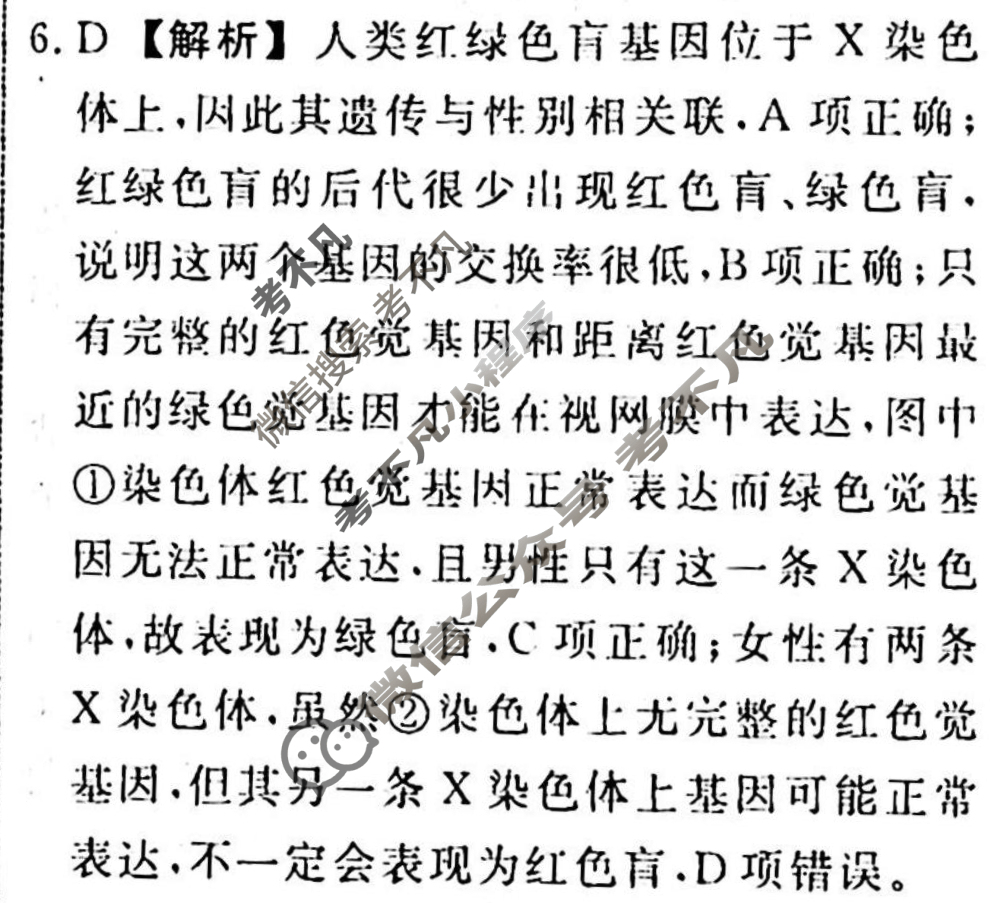 6. D 【解析】人类红绿色盲基因位于 X 染色
体上,因此其遗传与性别相关联,A 项正确;
红绿色盲的后代很少出现红色盲、绿色盲,
说明这两个基因的交换率很低,B 项正确;只
有完整的红色觉基因和距离红色觉基因最
近的绿色觉基因才能在视网膜中表达,图中
①染色体红色觉基因正常表达而绿色觉基
因无法正常表达,且男性只有这一条 X 染色
体,故表现为绿色盲,C 项正确;女性有两条
X 染色体,虽然②染色体上无完整的红色觉
基因,但其另一条 X 染色体上基因可能正常
表达,不一定会表现为红色盲,D 项错误。
考不凡
微信搜索考不凡
考不凡小程序
微信公众号 考不凡